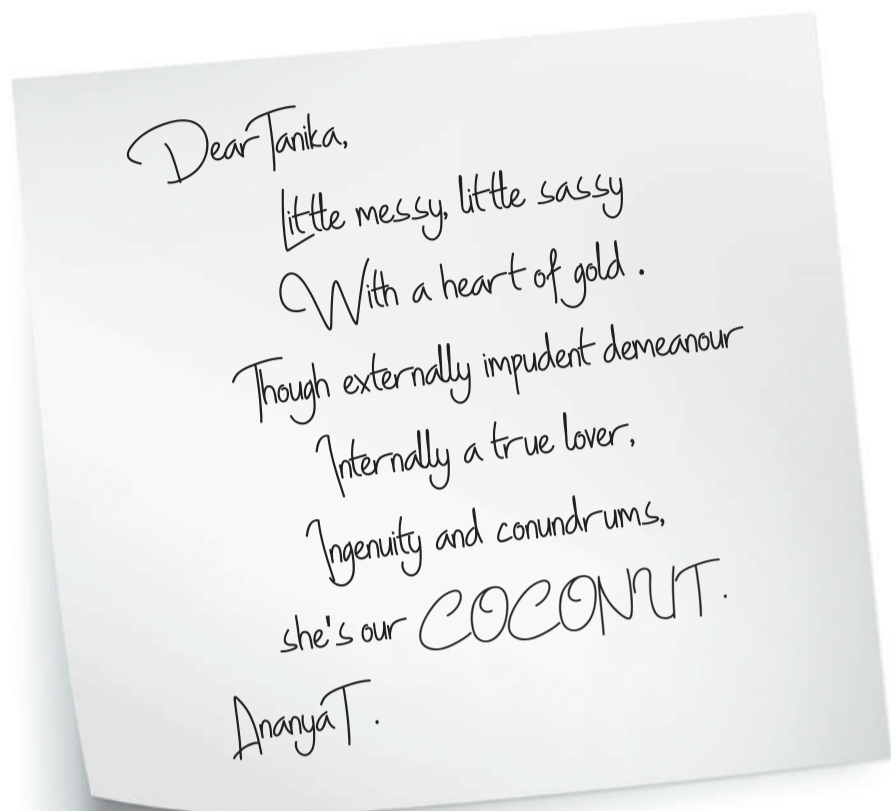 Dear Tanika,
Little messy, little sassy
With a heart of gold .
Though externally impudent demeanour
Internally a true lover,
Ingenuity and conundrums,
she's our COCONUT.
Ananya T .